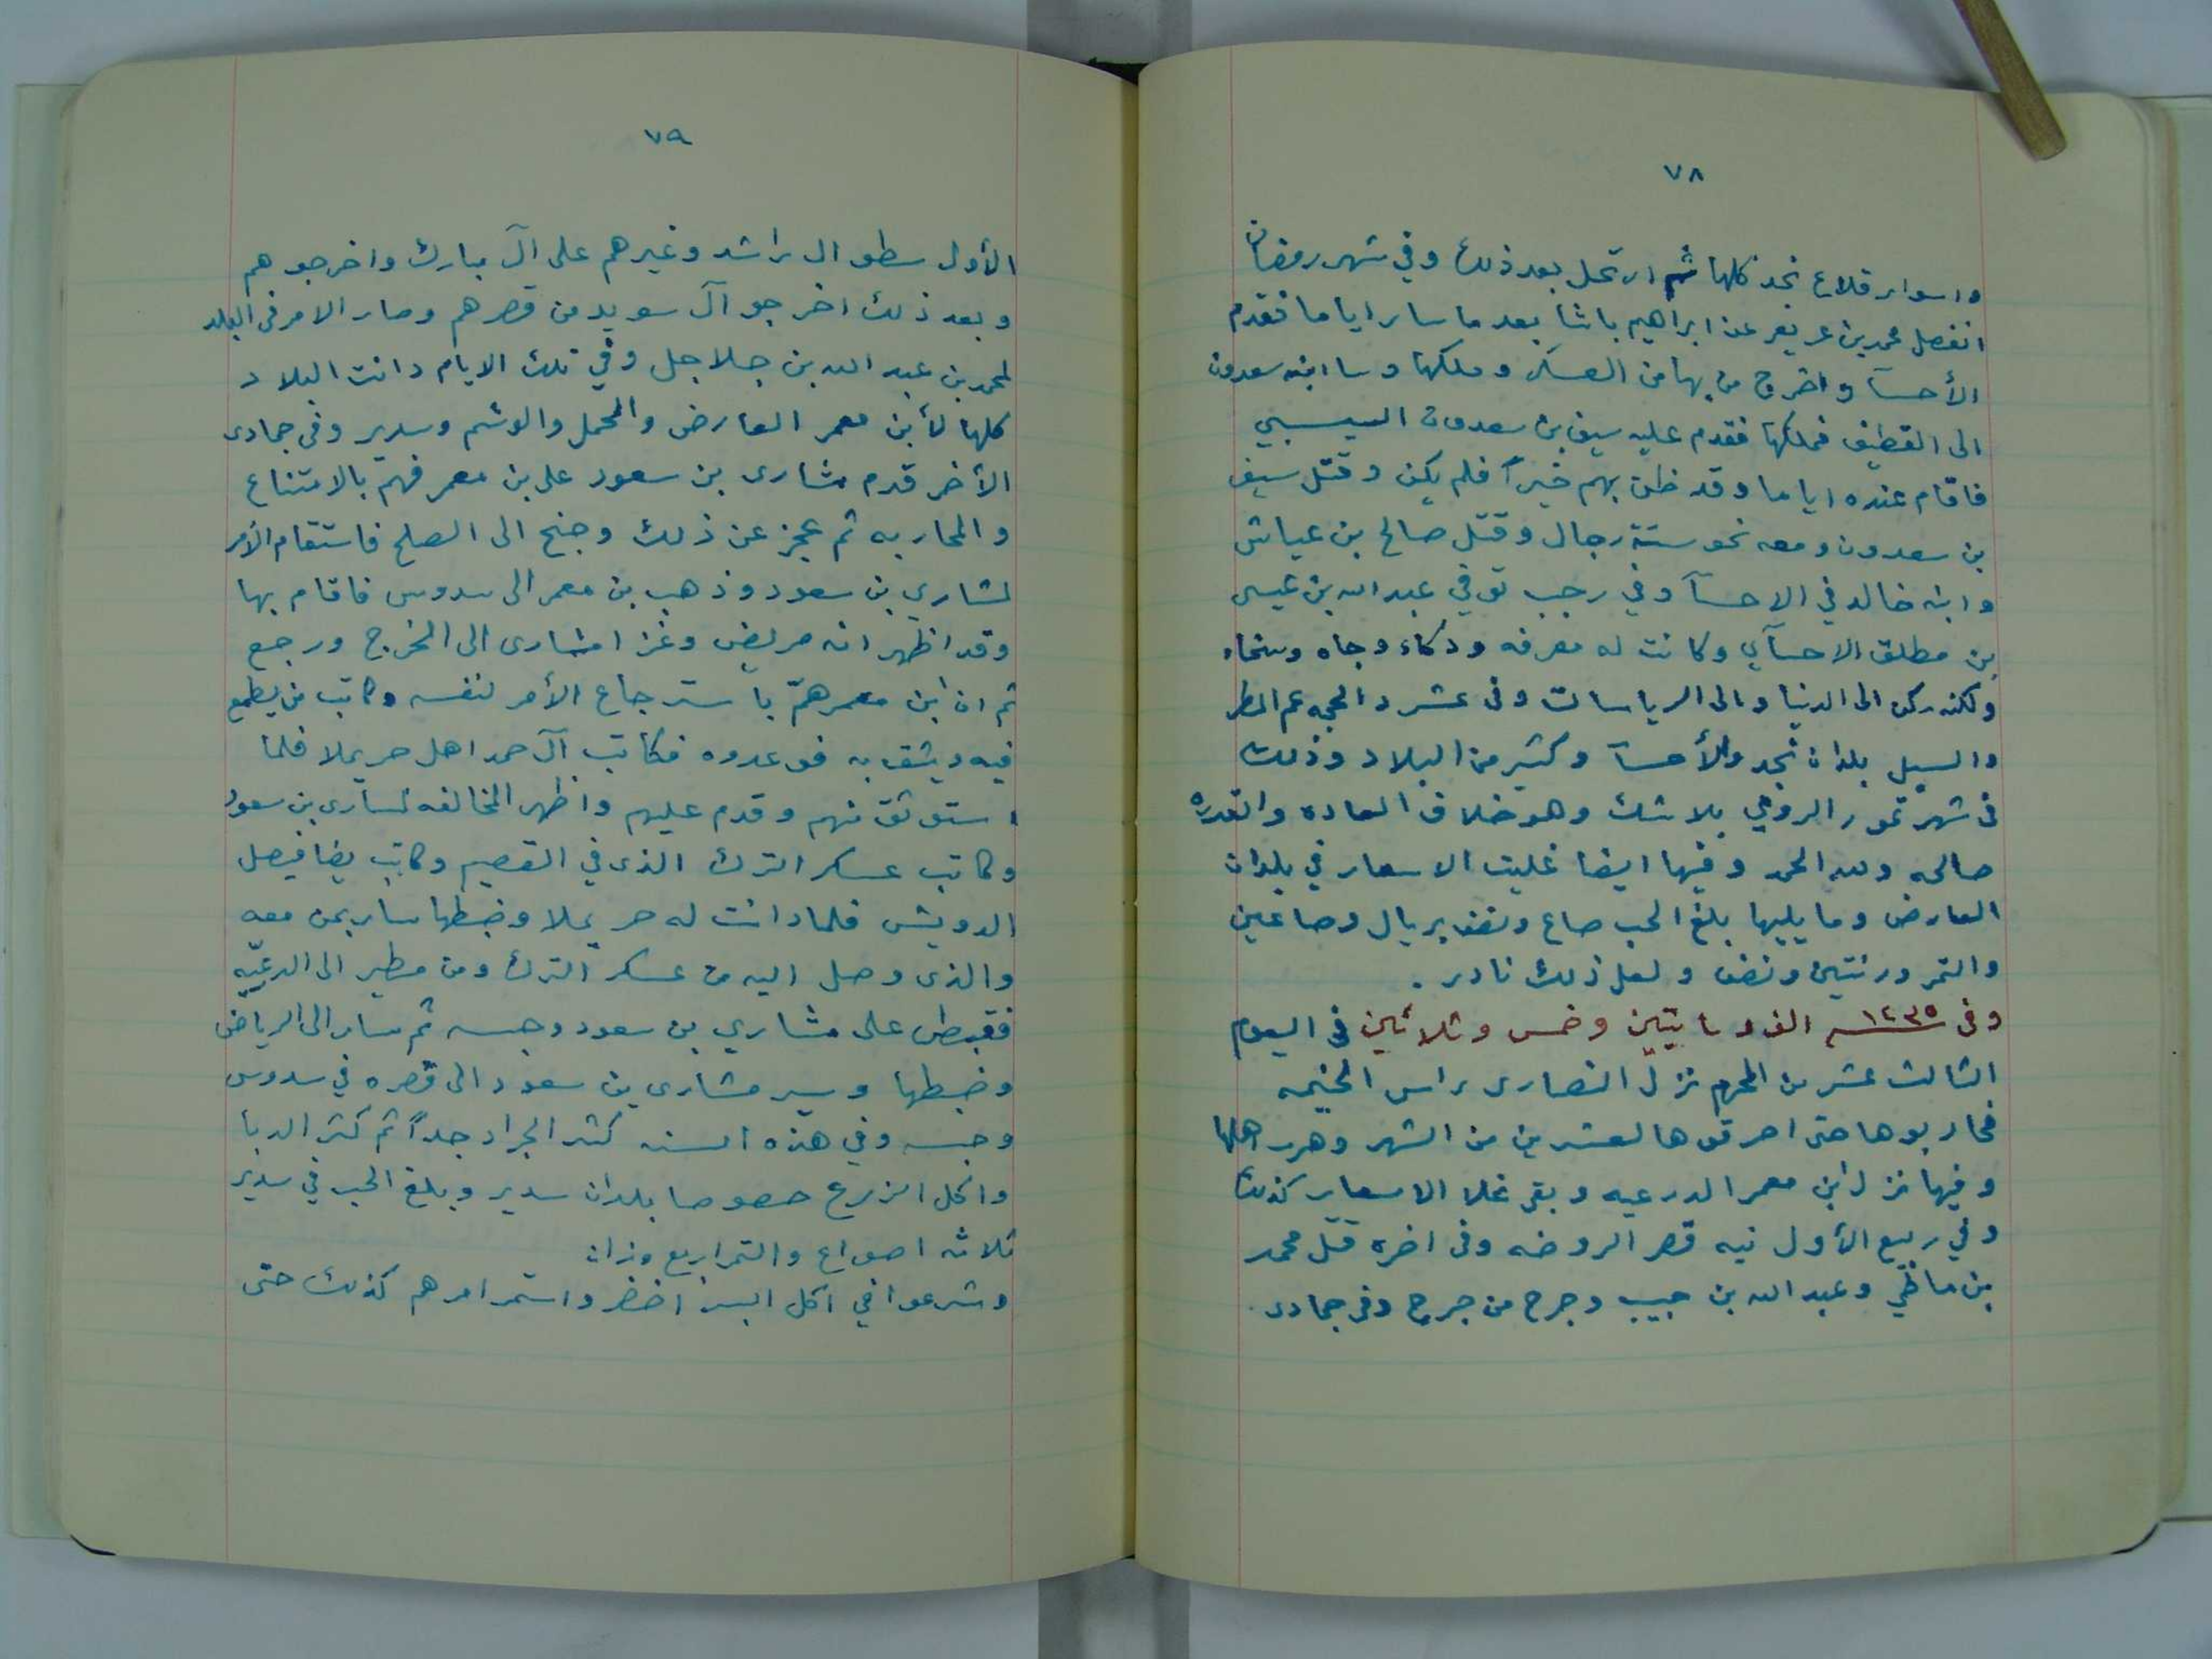 ٧٨
واسوار قلاع نجد كلها ثم ارتحل بعد ذلك وفي شهر رمضان
انفصل محمد بن عريعر عن ابراهيم باشا بعد ما سار اياما فقدم
الأحسآ واخرج من بها من العسكر وملكها وسا ابنه سعدون
الى القطيف فملكها فقدم عليه سيف بن سعدون السيسبي
فاقام عنده اياما وقد ظن بهم خيراً فلم يكن وقتل سيف
بن سعدون ومعه نحو ستة رجال وقتل صالح بن عياش
وابنه خالد في الاحسآ وفي رجب توفي عبد الله بن عيسى
بن مطلق الاحسآي وكانت له معرفه وذكاء وجاه وسخاء
ولكنه ركن الى الدنيا والى الرياسات وفى عشر ذ الحجه عم المطر
والسيل بلدان نجد والأحسآ وكثير من البلاد وذلك
فى شهر تموز الرومي بلا شك وهو خلاف العاده والقدره
صالحه ولله الحمد وفيها ايضا غليت الاسعار في بلدان
العارض وما يليها بلغ الحب صاع ونصف بريال وصاعين
والتمر وزنتين ونصف ولعل ذلك نادر .
وفى ١٢٣٥سنه الف ومايتين وخمس وثلاثين فى اليوم
الثالث عشر من المحرم نزل النصارى راس الخيمه
فحاربوها حتى احرقوها لعشرين من الشهر وهرب اهلها
وفيها نزل ابن معمر الدرعيه وبقى غلا الاسعار كذلك
وفي ربيع الأول نيه قصر الروضه وفى اخره قتل محمد
بن ماضي وعبد الله بن حبيب وجرح من جرح وفى جمادى
٧٩
الأول سطو ال راشد وغيرهم على آل مبارك واخرجوهم
وبعد ذلك اخرجو آل سويد من قصرهم وصار الامر فى البلد
لمحمد بن عبد الله بن جلاجل وفي تلك الايام دانت البلاد
كلها لأبن معمر العارض والمحمل والوشم وسدير وفى جمادى
الأخر قدم مشارى بن سعود على بن معمر فهم بالامتناع
والمحاربه ثم عجز عن ذلك وجنح الى الصلح فاستقام الأمر
لمشاري بن سعود وذهب بن معمر الى سدوس فاقام بها
وقد اظهر انه مريض وغزا مشارى الى الخرج ورجع
ثم ان ابن معمر همّ باسترجاع الأمر لنفسه وكاتب من يطمع
فيه ويثق به فوعدوه فكاتب آل حمد اهل حريملا فلما
استوثق منهم وقدم عليهم واظهر المخالفه لمشارى بن سعود
وكاتب عسكر الترك الذى في القصيم وكاتب يضا فيصل
الدويش فلما دانت له حريملا وضبطها سار بمن معه
والذى وصل اليه من عسكر الترك ومن مطير الى الدرعيّه
فقبض على مشاري بن سعود وحبسه ثم سار الى الرياض
وضبطها وسير مشارى بن سعود الى قصره في سدوس
وحبسه وفي هذه السنه كثر الجراد جداً ثم كثر الدبا
واكل الزرع خصوصا بلدان سدير وبلغ الحب في سدير
ثلاثه اصواع والتمر اربع وزان
وشرعوا في اكل البسر اخضر واستمر امرهم كذلك حتى